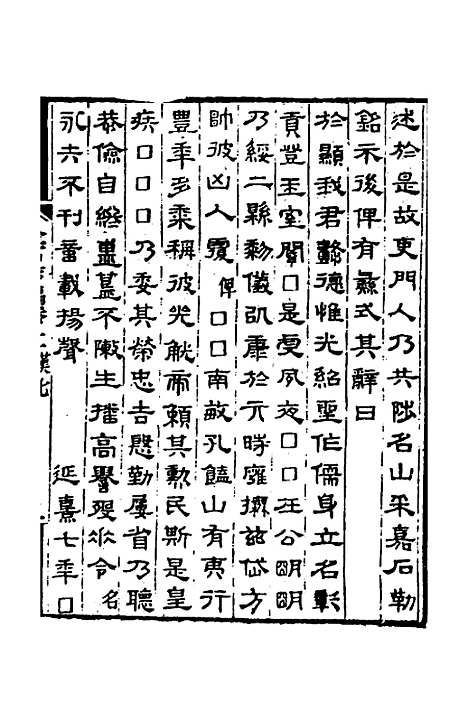 述於是故吏門人乃共陟名山采嘉石勒
銘示後俾有彝式其辭曰
於顯我君懿德惟光紹聖作儒身立名彰
貢登王室閽□是虔夙夜□□在公明明
乃綏二縣黎儀以康於亓時廱撫茲岱方
帥彼凶人覆俾□□南畝孔饁山有夷行
豐年多黍稱彼兕觥帝賴其勳民斯是皇
疾□□□乃委其榮忠告殷勤屢省乃聽
恭儉自終簠簋不敶生播高譽歿垂令名
永矢不刊億載揚聲　延熹七年□
漢七